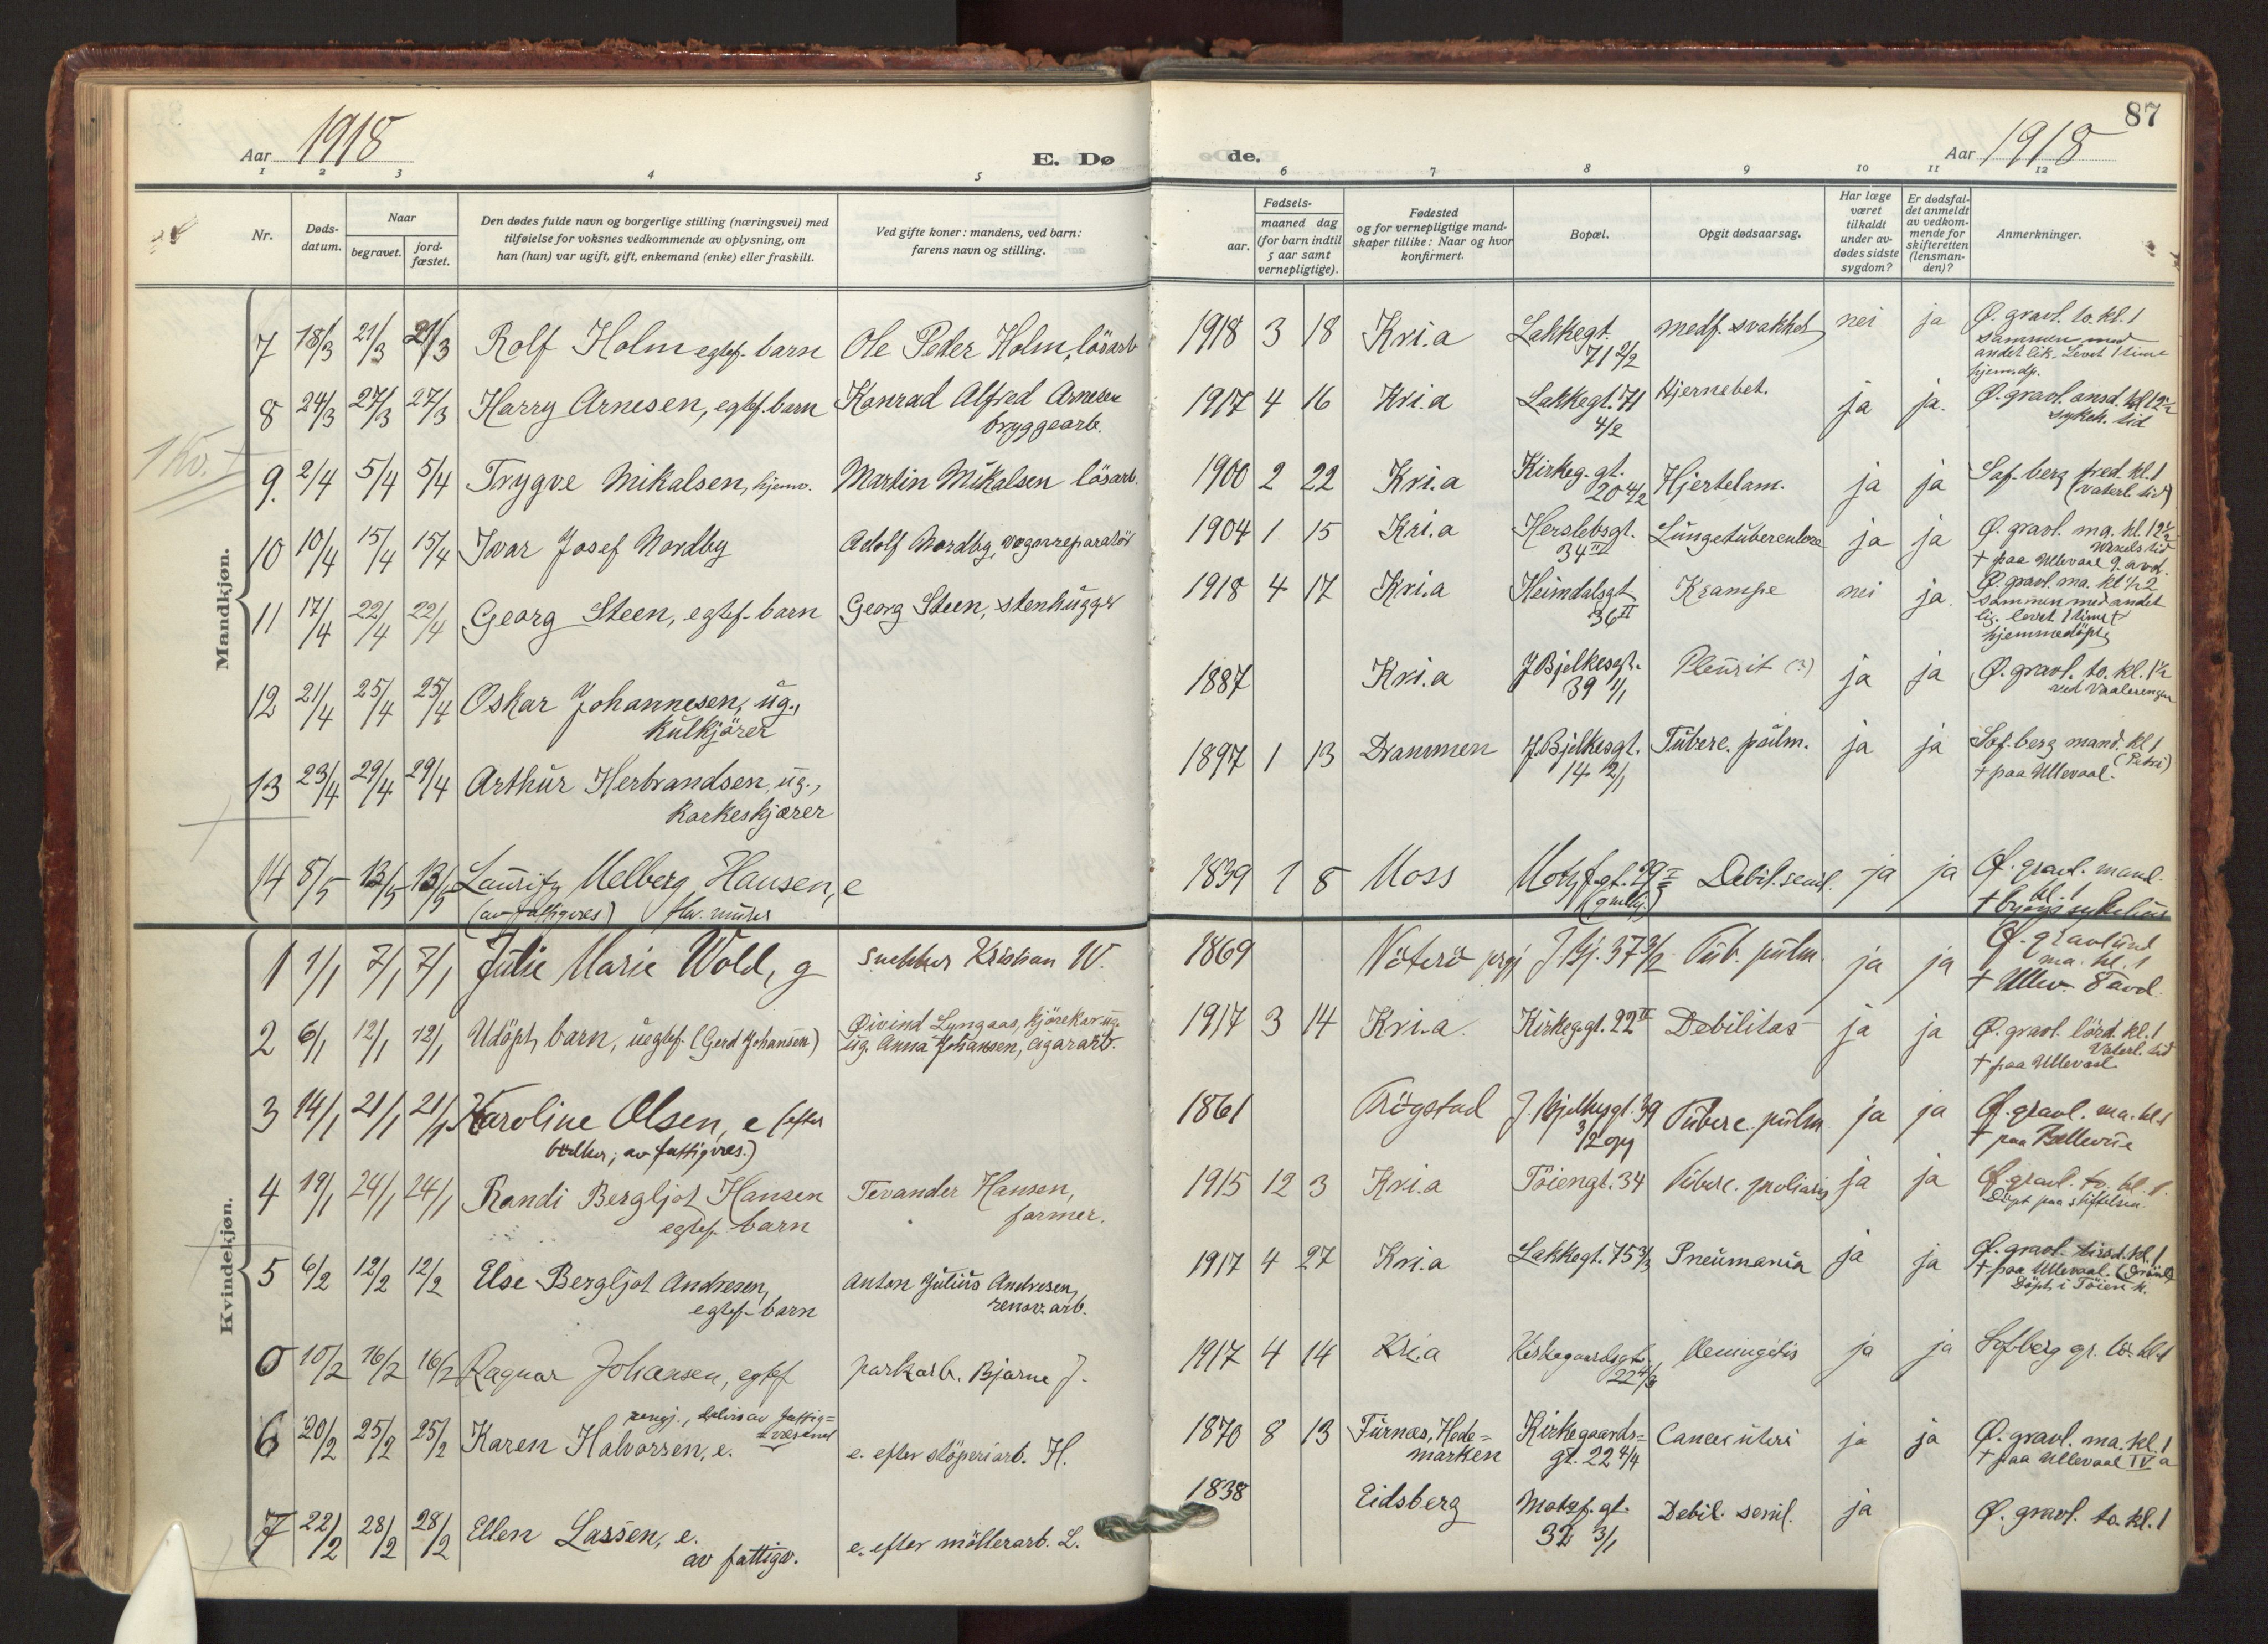 Aar 1918
E. Dø
de.
Aar 1918
87
1 2 3 4 5 6 7 8 9 10 11 12
Nr.
Døds-
datum.
Naar
begravet.
jord-
fæstet.
Den dødes fulde navn og borgerlige stilling (næringsvei) med
tilføielse for voksnes vedkommende av oplysning, om
han (hun) var ugift, gift, enkemand (enke) eller fraskilt.
Ved gifte koner: mandens, ved barn:
farens navn og stilling.
Fødsels-
aar.
maaned dag
(for barn indtil
5 aar samt
vernepligtige).
Fødested
og for vernepligtige mand-
skaper tillike: Naar og hvor
konfirmert.
Bopæl.
Opgit dødsaarsag.
Har læge
været
tilkaldt
under av-
dødes sidste
sygdom?
Er dødsfal-
det anmeldt
av vedkom-
mende for
skifteretten
(lensman-
den)?
Anmerkninger.
Mandkjøn.
7 18/3 21/3 21/3 Rolf Holm egtef. barn Ole Peder Holm, lösarb 1918 3 18 Kri.a Lakkegt. medf. svakhet nei ja Ø. gravl. to. kl. 1
71 2/2 sammen med
andet lik. Levet 1 time
hjemdp.
8 24/3 27/3 27/3 Harry Arnesen, egtef. barn Konrad Alfred Arnesen 1917 4 16 Kri.a Lakkegt. 71 Hjernebet. ja ja. Ø. gravl. onsd. kl 12 1/2
bryggearb. 4/2 sykeh. tid
9. 2/4 5/4 5/4 Trygve Mikalsen, hjemv. Martin Mikalsen lösarb. 1900 2 22 Kri.a Kirkeg. gt. Hjertelam. ja ja Sof. berg fred. kl. 1
20 4/2 (Vaterl. tid)
10 10/4 15/4 15/4 Ivar Josef Nordby Adolf Nordby, vognreparatör 1904 1 15 Kri.a Herslebsgt. Lungetuberculose ja ja Ø. gravl. ma. kl. 12 1/2
34 II Wexels tid
+ paa Ullevaal 9. avd.
11 17/4 22/4 22/4 Georg Steen, egtef. barn Georg Steen, stenhugger 1918 4 17 Kri.a Heimdalsgt Krampe nei ja. Ø. gravl. ma. kl 1/2 2
36 II sammen med andet
lig. levet 1 time
hjemmedöpt
12 21/4 25/4 25/4 Oskar Johannesen, ug., 1887 Kri.a J. Bjelkesgt. Pleurit (?) ja ja Ø. gravl. to. kl. 1 1/2
kulkjörer 39 1/1 ved Vaalerengen
13 23/4 29/4 29/4 Arthur Herbrandsen, ug., 1897 1 13 Drammen J. Bjelkesgt. Tuberc. pulm. ja ja Sof. berg mand. kl 1
korkeskjærer 14 2/1 (Petri)
+ paa Ullevaal.
14 8/5 13/5 13/5 Lauritz Melberg Hansen, e 1839 1 8 Moss Motzf. gt. 29 Debil. senil. ja ja Ø. gravl. mand.
(av fattigves.) kl. 1
Kvindekjøn.
1 1/1 7/1 7/1 Julie Marie Wold, g snekker Kristian W. 1869 Nöterö J. Bj. 37 3/2 Tub. pulm. ja ja Ø. gravlund
ma. kl. 1
+ Ullev. 8 avd.
2 6/1 12/1 12/1 Udöpt barn, uegtef. (Gerd Johansen) Öivind Lyngaas, kjörekar ug. 1917 3 14 Kri.a. Kirkeg.gt. 22 II Debilitas ja ja Ø. gravl. lörd. kl. 1
ug. Anna Johansen, cigararb. Vaterl. tid
+ paa Ullevaal
3 14/1 21/1 21/1 Karoline Olsen, e (efter 1861 Trögstad J. Bjelkesgt. 39 Tuberc. pulm ja ja Ø. gravl. ma. kl. 1
av fattigves.) 3/2 + paa Bellevue
4 19/1 24/1 24/1 Randi Bergljot Hansen Tevander Hansen, 1915 12 3 Kri.a Töiengt. 34 Tuberc. ja ja Ø. gravl. to. kl. 1.
egtef. barn former. Döpt paa stiftelsen.
5 6/2 12/2 12/2 Else Bergljot Andresen, Anton Julius Andresen, 1917 4 27 Kri.a Lakkegt. 75 3/3 Pneumonia ja ja Ø. gravl. tirsd. kl. 1
egtef. barn renov. arb. + paa Ullevaal. (Grönl)
Döpt i Töien k.
0 10/2 16/2 16/2 Ragnar Johansen, egtef parkarb. Bjarne J. 1917 4 14 Kri.a Kirkegaardsgt. Meningitis ja ja Sofberg gr. lö. kl. 1
22 4/3
6 20/2 25/2 25/2 Karen Halvorsen, e. rengj., delvis av fattig= væsenet e. efter stöperiarb. H. 1870 8 13 Furnæs, Hede= Kirkegaards= Cancer uteri ja ja Ø. gravl. ma. kl. 1
marken gt. 22 4/4 + paa Ullevaal IV a
7 22/2 28/2 28/2 Ellen Lassen, e. e. efter möllerarb. L. 1838 Eidsberg Motzf. gt. Debil. senil. ja Ø. gravl. to. kl. 1
av fattigv. 32 3/1